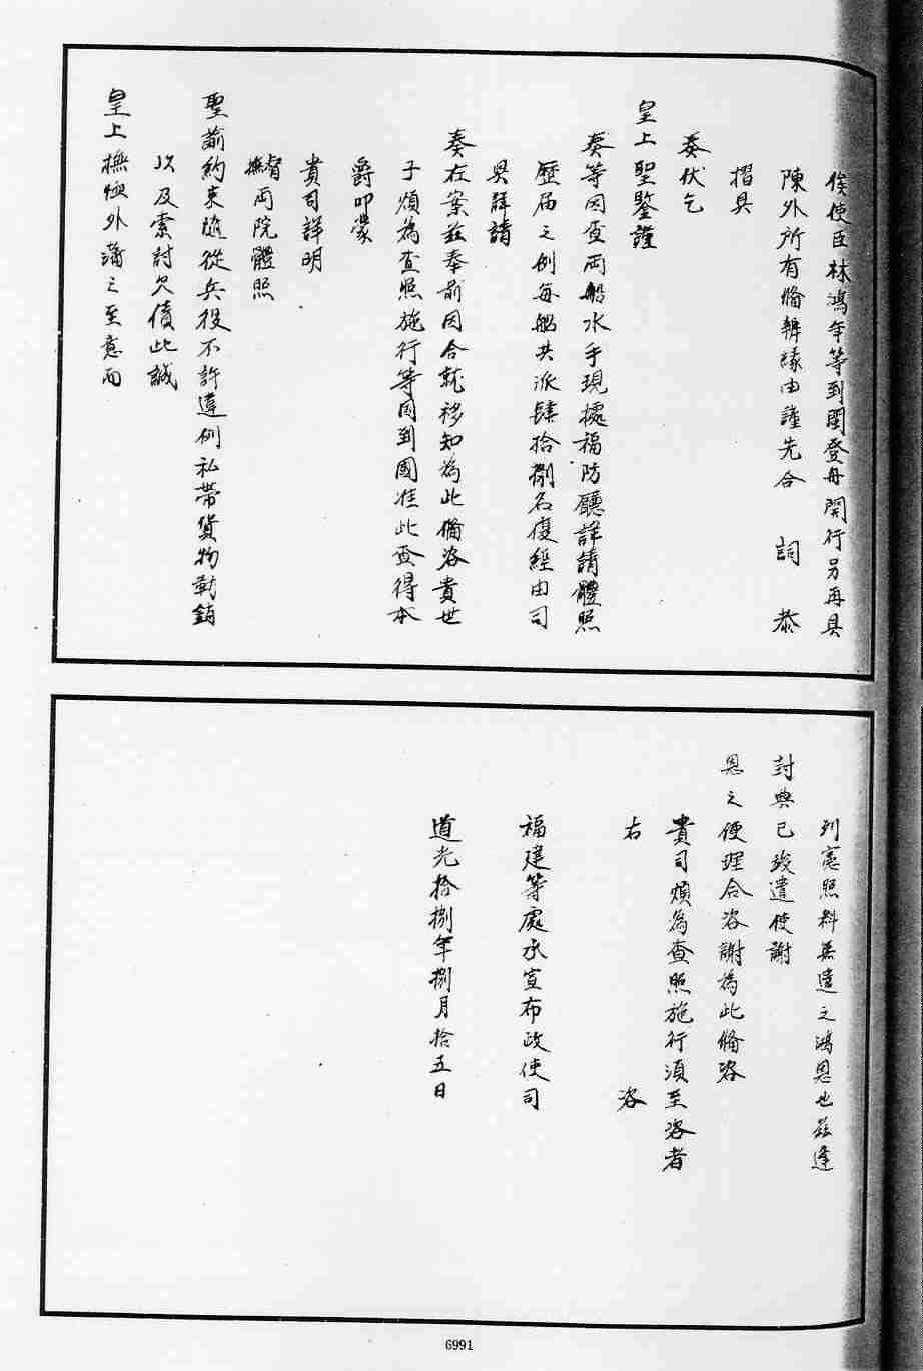 俟使臣林鴻年等到閩登舟開行另再具
陳外所有備辦緣由謹先合 詞 恭
摺具
奏伏乞
皇上聖鑒謹
奏等因查両船水手現據福防廳詳請體照
歷届之例每船共派肆拾捌名復經由司
具詳請
奏在案茲奉前因合就移知為此備咨貴世
子煩為查照施行等因到國准此查得本
爵叩蒙
貴司詳明
督撫両院體照
聖諭約束隨從兵役不許違例私帶貨物勒銷
以及索討欠債此誠
皇上撫恤外藩之至意而
列憲照料無遺之鴻恩也茲逢
封典已竣遣使謝
恩之便理合咨謝為此備咨
貴司煩為查照施行湏至咨者
右 咨
福建等處承宣布政使司
道光拾捌年捌月拾五日
6991